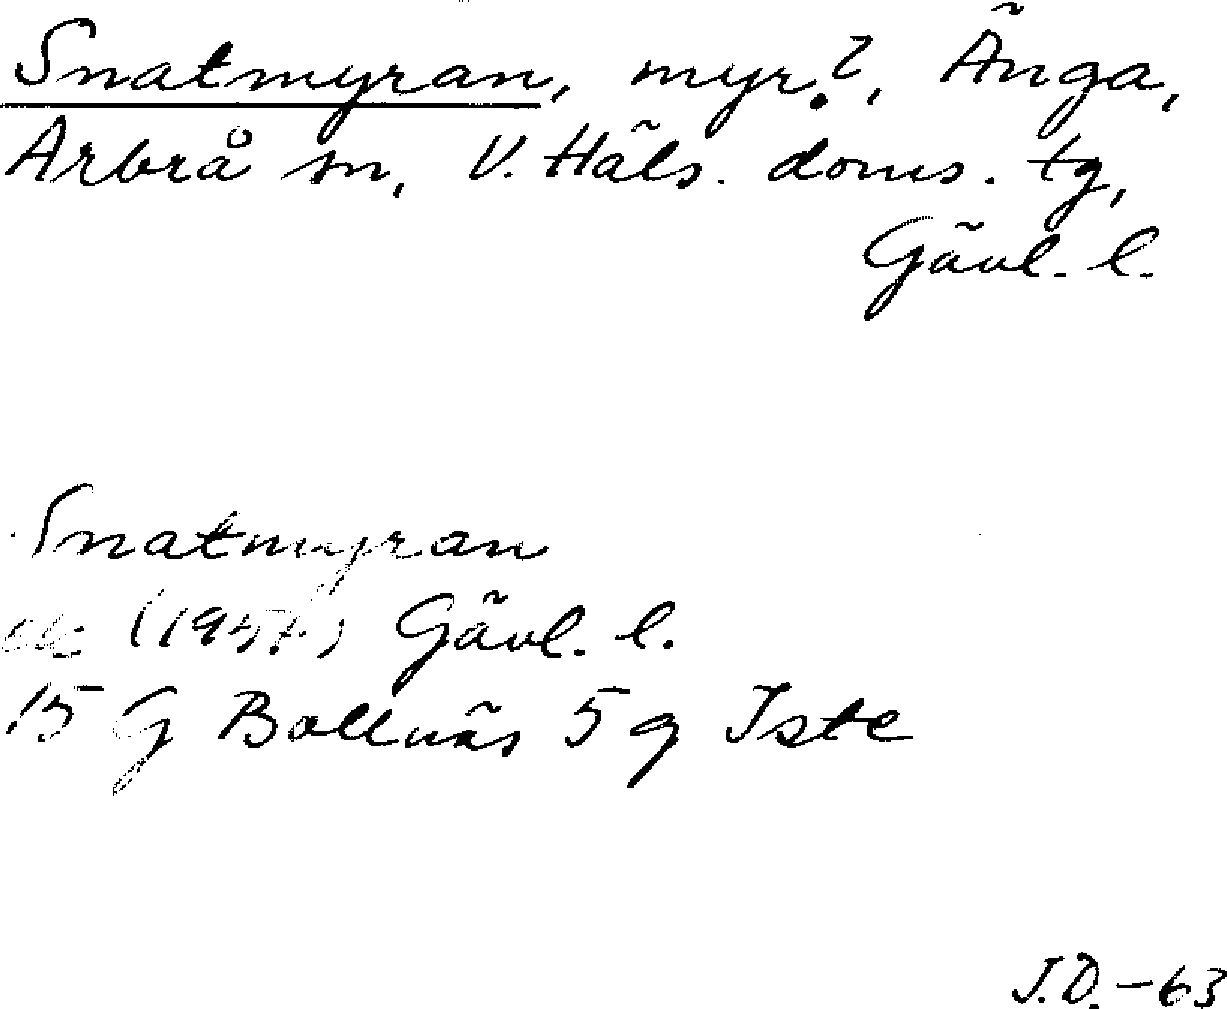 Snatmyran, myr?, Änga,
Arbrå sn, V. Häls. doms. tg,
Gävl. l.
Snatmyran
ek (1957) Gävl. l.
15 G Bollnäs 5 g Iste
J.D. -63